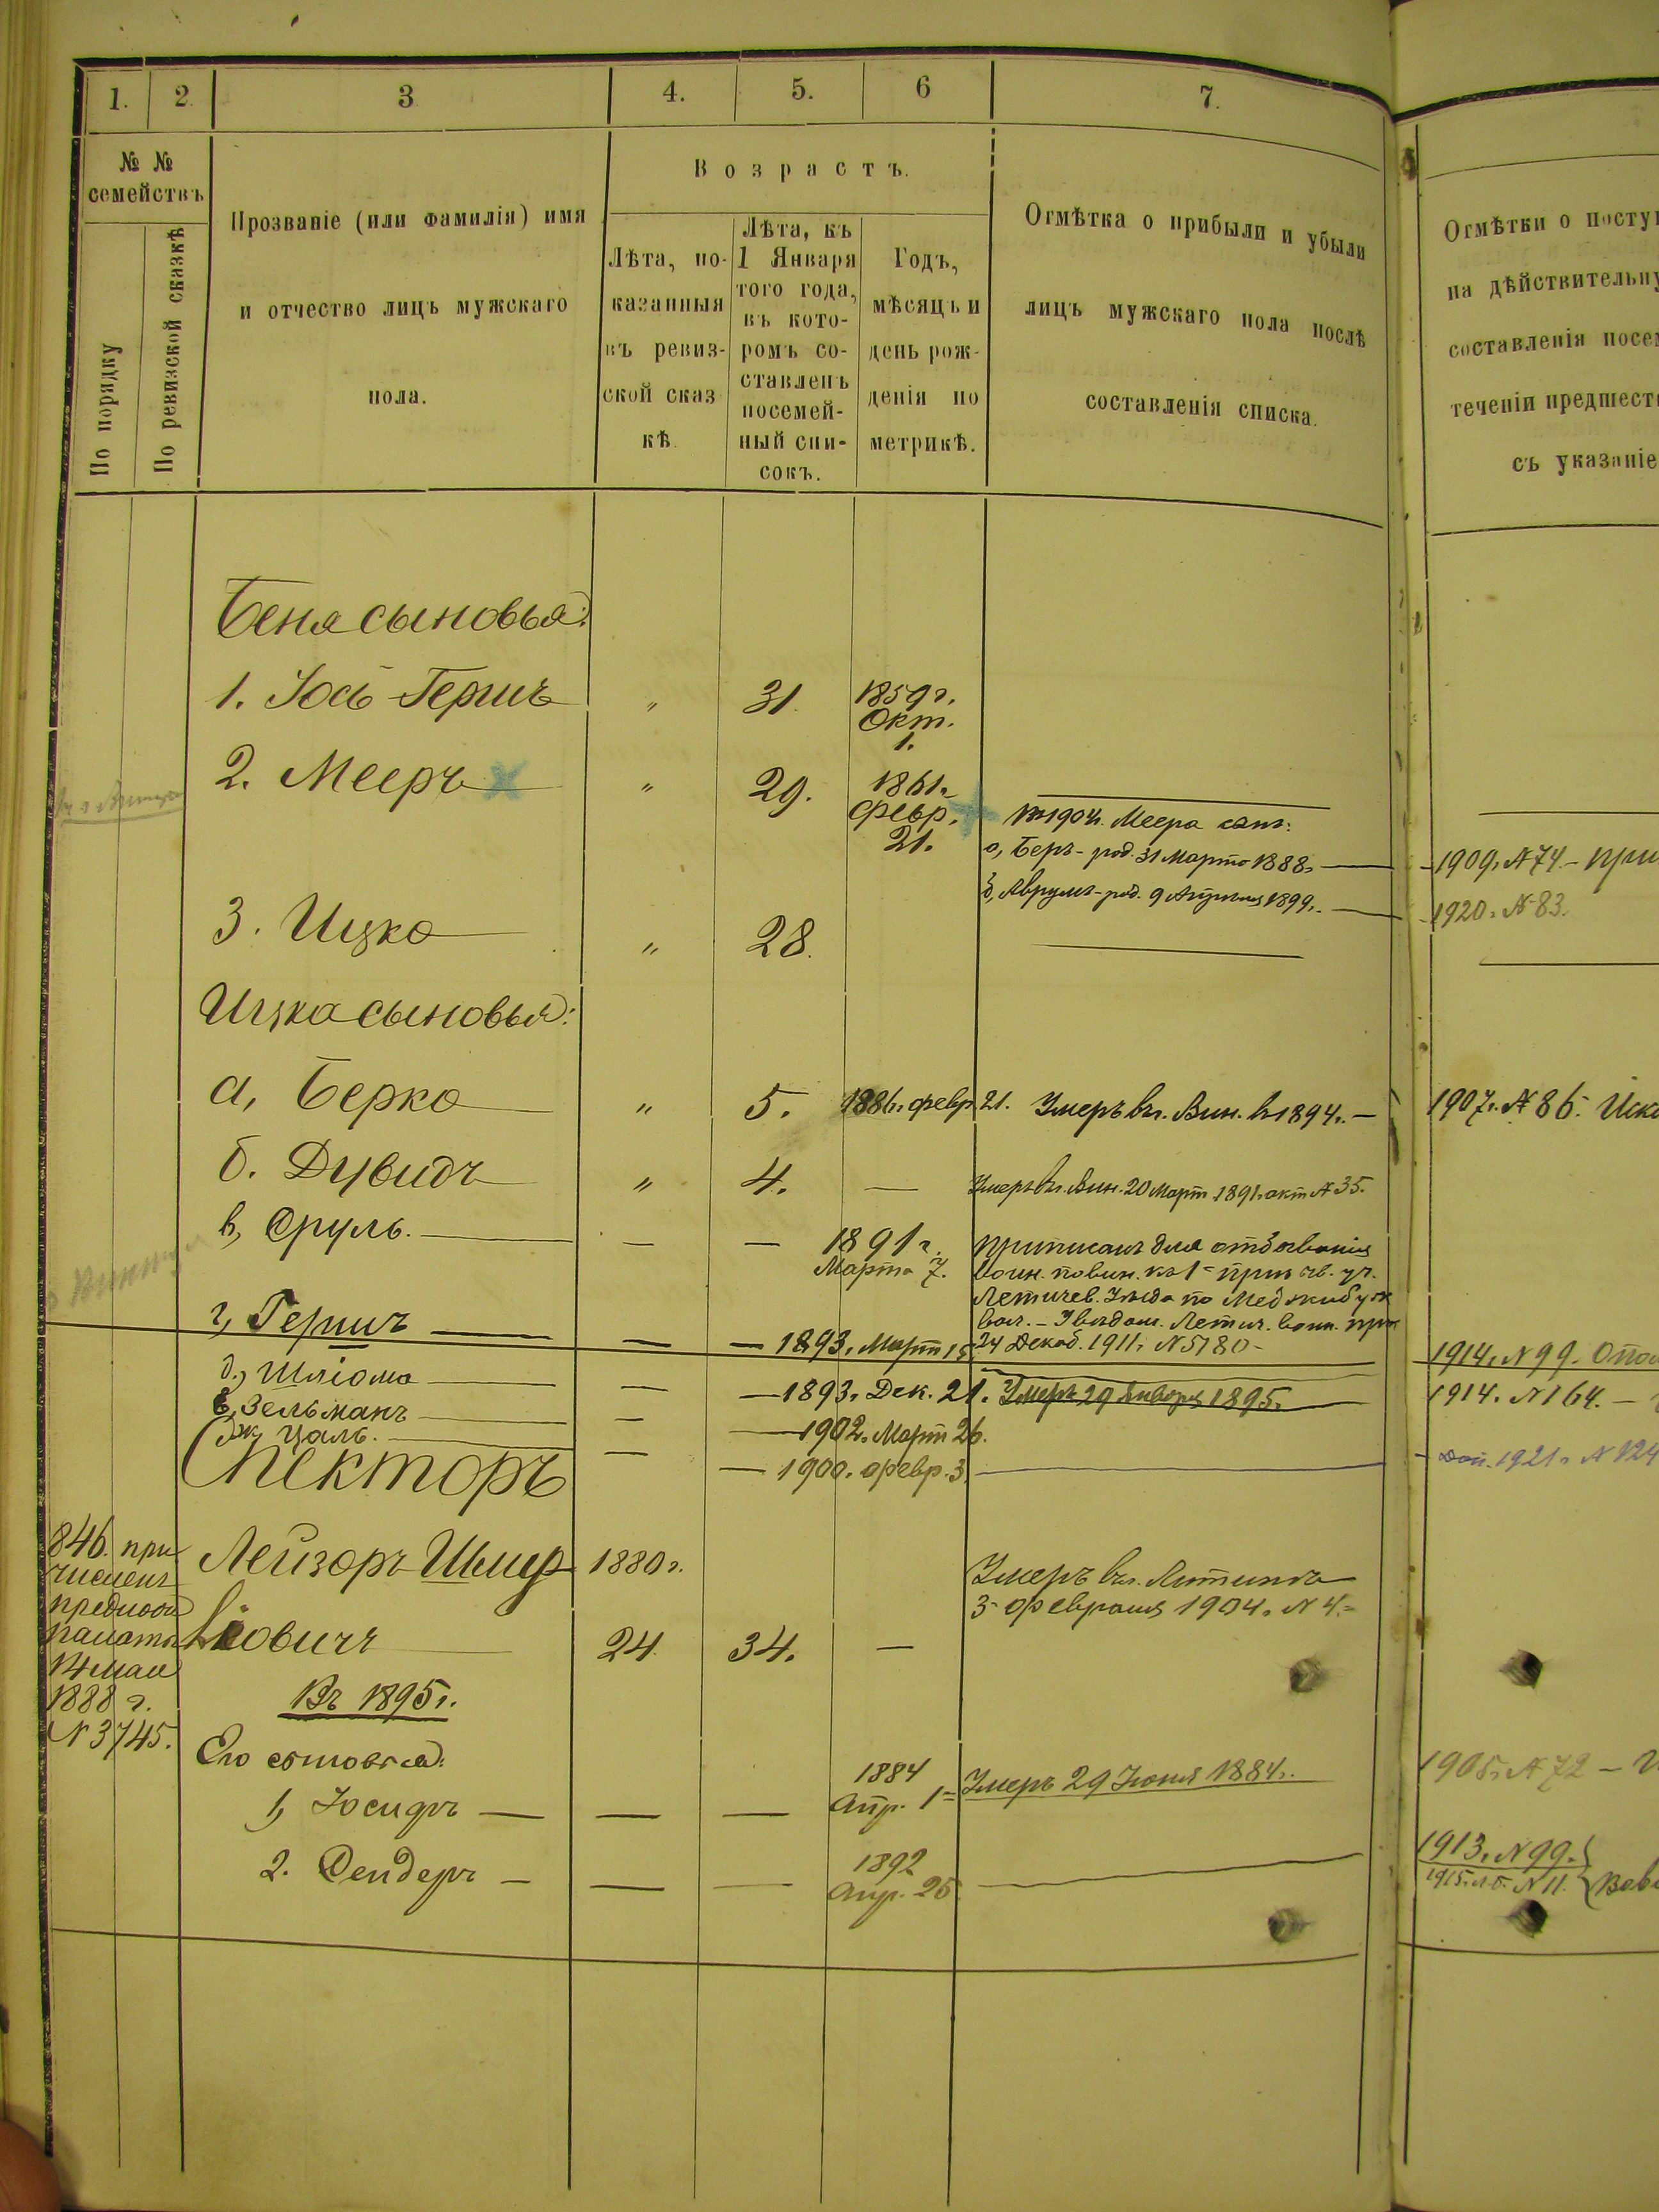 1. 2. 3 4. 5. 6 7.
№ № семействъ
По порядку
По ревизской сказкѣ
Прозваніе (или фамилія) имя
и отчество лицъ мужскаго
пола.
Возрастъ.
Лѣта, по-
казанныя
въ ревиз-
ской сказ
кѣ
Лѣта, къ
1 Января
того года,
въ кото-
ромъ со-
ставленъ
посемей-
ный спи-
сокъ.
Годъ,
мѣсяцъ и
день рож-
денія по
метрикѣ.
Отмѣтка о прибыли и убыли
лицъ мужскаго пола послѣ
составленія списка.
Отмѣтки о посту
на дѣйствительну
составленія посем
теченіи предшест
съ указаніе
Беня сыновья:
1. Іось-Гершъ " 31. 1859 г.
Окт.
1.
2. Мееръ " 29. 1861 г.
Февр.
21.
1904 г. Меера сын:
а, Беръ - род. 31 Марта 1888 г.
1909 г. № 74. - при
б, Аврумъ - род. 9 1899 г.
1920 г. № 83.
3. Ицко " 28.
Ицка сыновья:
а, Берко " 5. 1886 г. февр. 21. Умеръ въ г. Вин. въ 1894 г. —
1907 г. № 86. Иск
б. Дувидъ " 4. — Умеръ въ г. Вин. 20 Март. 1891 г. акт № 35.
в, Сруль. — — 1891 г.
Марта 7.
приписанъ для отбыванія
воин. повин. къ 1 приз. уч.
Летичев. Уѣзда по Меджибуж
24 Декаб. 1911 г. № 5780 -
г, Гершъ — — 1893 г. Март. 15
1914 г. № 99.
д, Шліома — — 1893 г. Дек. 21. Умеръ 29 Января 1895 г.
1914. № 164. —
е, Зельманъ — — 1902 г. Март 26.
ж, Цаль. — — 1900 г. февр. 3.
1921 г. № 124
Спекторъ
846. при
численъ
14 мая
1888 г.
№ 3745.
Лейзоръ Шмер 1880 г.
ліовичъ 24. 34. —
Умеръ въ г. Литинѣ
3 февраля 1904 г. № 4.
Въ 1895 г.
Его сыновья:
1, Юсифъ — — — 1884
Апр. 1
Умеръ 29 Іюня 1884 г.
1905 г. № 72 —
2. Сендеръ — — — 1892
Апр. 25
1913 г. № 99.
№ 11.